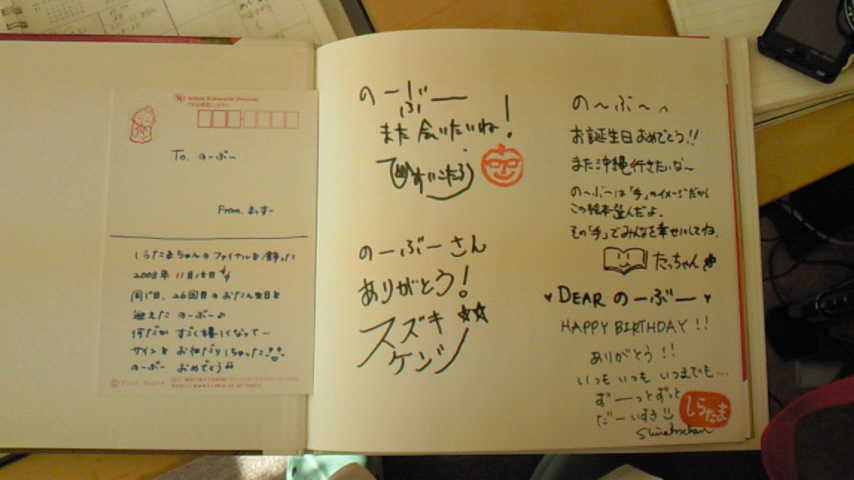 To. のーぶー
From. まっすー
しらたまちゃんのファイナルを飾った
2008年 11月15日
同じ日、26回目のおたん生日を
迎えた のーぶー♪
何だか すごく嬉しくなってー
サインを おねだりしちゃった
のーぶー おめでとう
のーぶー
また 会いたいね!
のーぶーさん
ありがとう!
スズキ
ケンジ
の〜ぶ〜へ
お誕生日おめでとう!!
また沖縄行きたいな〜
の〜ぶ〜は「手」のイメージだから
この絵本選んだよ。
その「手」でみんなを幸せにしてね。
たっちゃん
♥ DEAR のーぶー ♥
HAPPY BIRTHDAY!!
ありがとう!!
いつも いつも いつまでも...
ずーっとずっと
だーいすき
しらたま